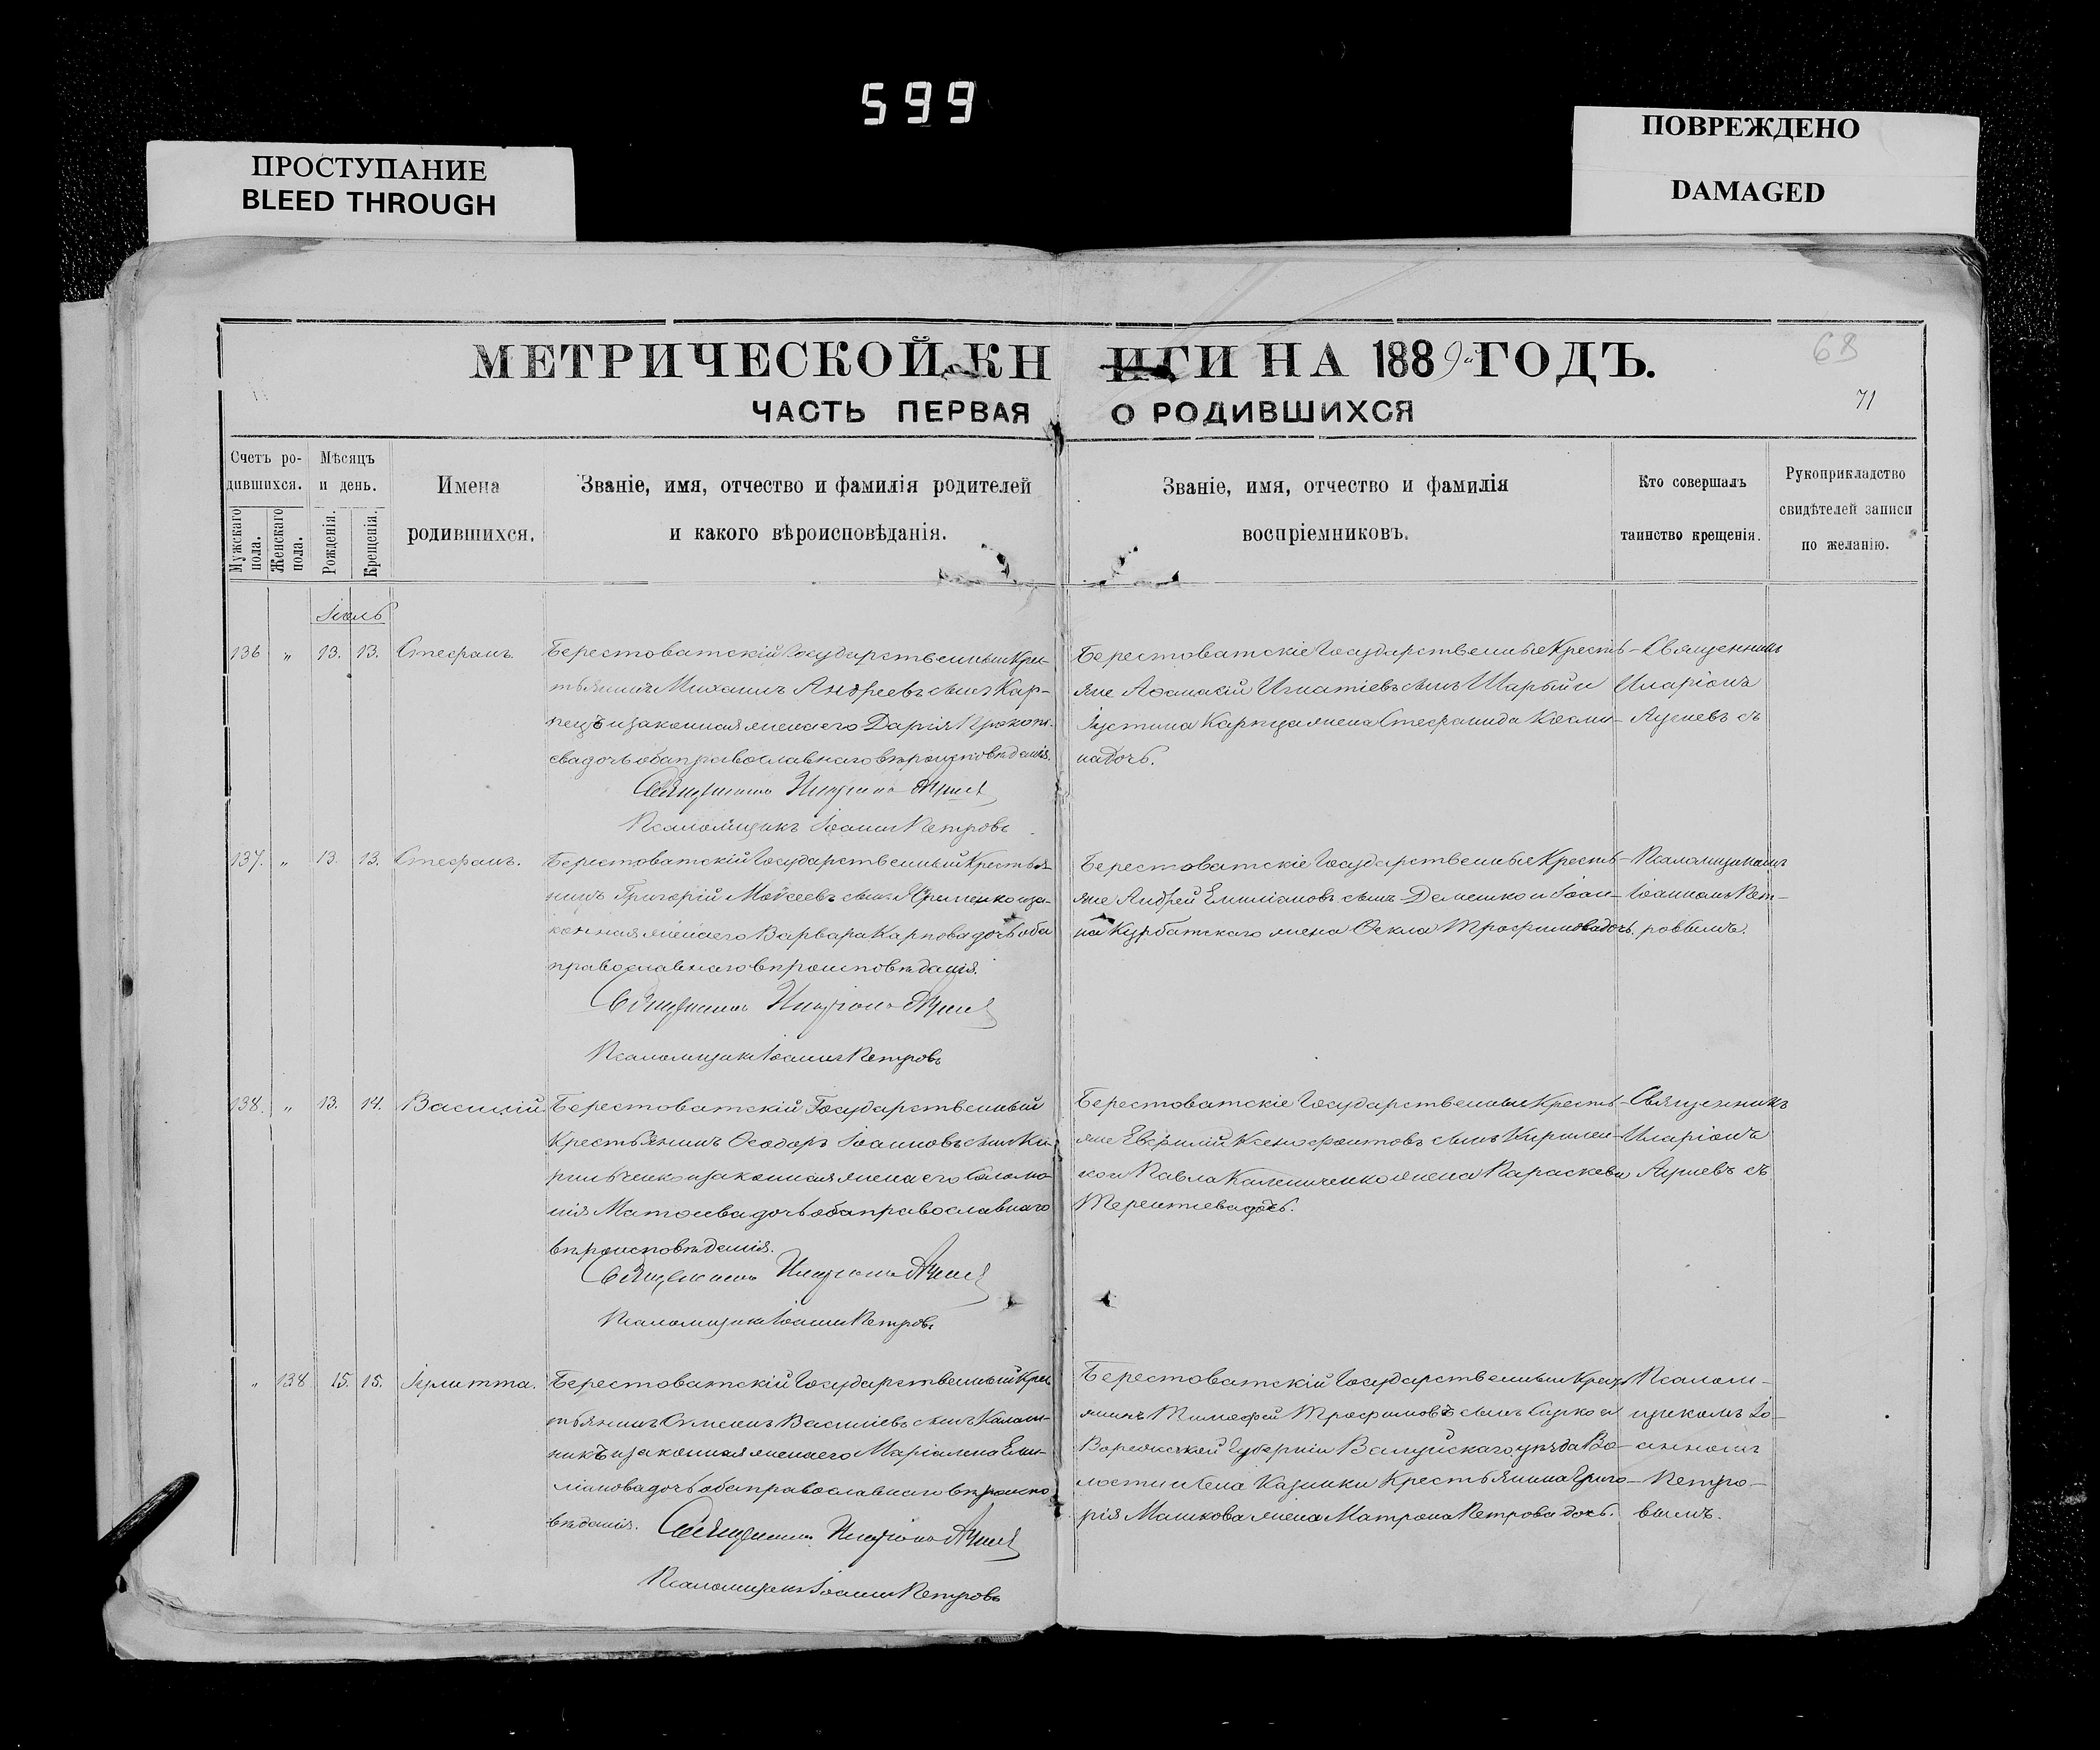 599
ПРОСТУПАНИЕ
BLEED THROUGH
ПОВРЕЖДЕНО
DAMAGED
МЕТРИЧЕСКОЙ КНИГИ НА 1889 ГОДЪ.
68
71
ЧАСТЬ ПЕРВАЯ О РОДИВШИХСЯ
Счетъ ро-
дившихся.
Мужскаго пола.
Женскаго пола.
Мѣсяцъ
и день.
Рожденія.
Крещенія.
Имена
родившихся.
Званіе, имя, отчество и фамилія родителей
и какого вѣроисповѣданія.
Званіе, имя, отчество и фамилія
воспріемниковъ.
Кто совершалъ
таинство крещенія.
Рукоприкладство
свидѣтелей записи
по желанію.
Іюль
136 " 13. 13. Стефанъ.
Берестоватскій Государственный Крес-
тьянинъ Михаилъ Андреевъ сынъ Кар-
пецъ и законная жена его Дарія Прокопі-
ева дочь оба православнаго вѣроисповѣданія.
Священникъ Иларіонъ
Псаломщикъ Іоаннъ Петровъ
Берестоватскіе Государственные Кресть-
яне Аѳанасій Игнатіевъ сынъ Шарый и
Іустина Карпца жена Стефанида Косми-
на дочь.
Священникъ
Иларіонъ
137. " 13. 13. Стефанъ.
Берестоватскій Государственный Крестья-
нинъ Григорій Моѵсеевъ сынъ Яременко и за-
конная жена его Варвара Карпова дочь оба
православнаго вѣроисповѣданія.
Священникъ Иларіонъ
Псаломщикъ Іоаннъ Петровъ
Берестоватскіе Государственные Кресть-
яне Андрей Емиліановъ сынъ Демешко и Іоан-
на Курбатскаго жена Ѳекла Трофимова дочь.
Псаломщикомъ
Іоанномъ Пет-
ровымъ.
138. " 13. 14. Василій
Берестоватскій Государственный
Крестьянинъ Ѳеодоръ Іоанновъ сынъ Ки-
рильченко и законная жена его Соломо-
нія Матѳеева дочь оба православнаго
вѣроисповѣданія.
Священникъ Иларіонъ
Псаломщикъ Іоаннъ Петровъ
Берестоватскіе Государственные Кресть-
яне Евфимій Ксенофонтовъ сынъ Кирилен-
ко и Павла Калениченко жена Параскева
Терентіева дочь.
Священникъ
Иларіонъ
" 138 15. 15. Іулитта.
Берестоватскій Государственный Крес-
тьянинъ Сѵмеонъ Василіевъ сынъ Калаш-
никъ и законная жена его Маріамна Еми-
ліанова дочь оба православнаго вѣроиспо-
вѣданія.
Священникъ Иларіонъ
Псаломщикъ Іоаннъ Петровъ
Берестоватскій Государственный Кресть-
янинъ Тимоѳей Трофимовъ сынъ Сирко и
Воронежской Губерніи Валуйскаго уѣзда Во-
лости и Села Казинки Крестьянина Григо-
рія Машкова жена Матрона Петрова дочь.
Псалом-
щикомъ Іо-
анномъ
Петро-
вымъ.